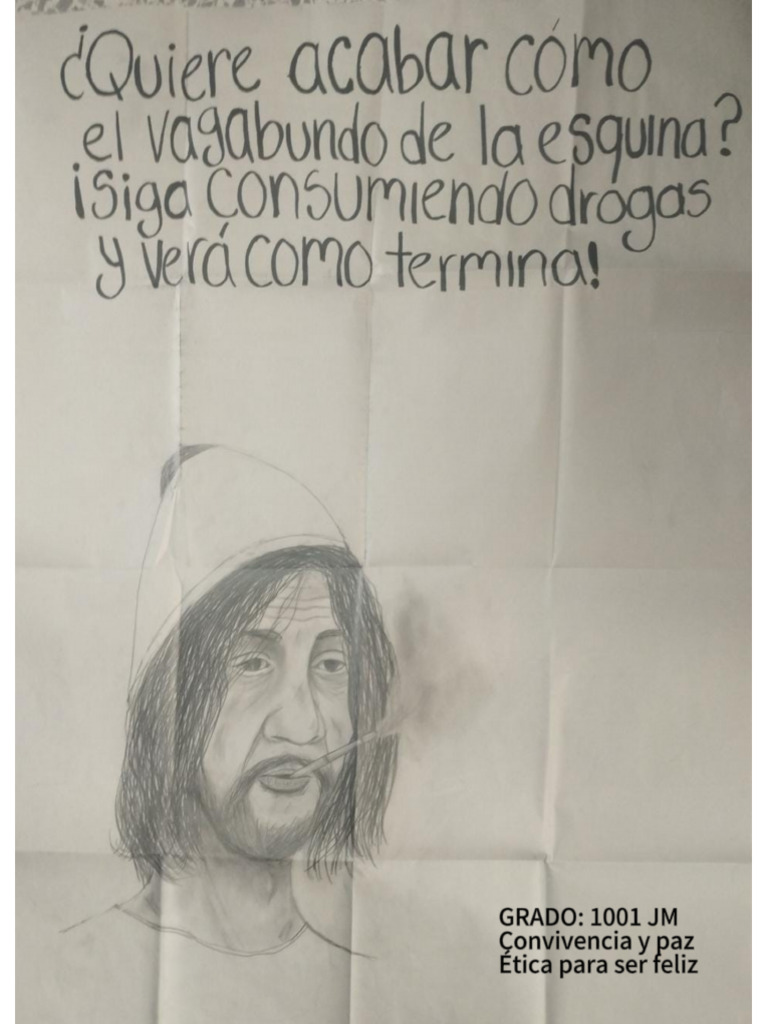 ¿Quiere acabar cómo
el vagabundo de la esquina?
¡Siga consumiendo drogas
y verá como termina!
GRADO: 1001 JM
Convivencia y paz
Ética para ser feliz